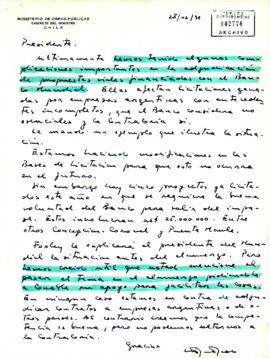 MINISTERIO DE OBRAS PUBLICAS
GABINETE DEL MINISTRO
CHILE
PRESIDENCIAL
002776
ARCHIVO
Presidente:
Ultimamente hemos tenido algunas complicaciones importantes en la adjudicación
de propuestas viales financiadas con el Banco
Mundial. Ellas afectan licitaciones ganadas
por empresas argentinas con antecedentes
incompletos, que el Banco considera no
esenciales y la Contraloría si.
Le mando un ejemplo que ilustra la situación.
Estamos haciendo modificaciones en las
Bases de Licitación para que esto no ocurra
en el futuro.
Sin embargo hay cinco proyectos ya licitados
este año en que se requiere la buena
voluntad del Banco para salir del impase.
Estos involucran US$ 25.000.000. Entre
otros Concepción Coronel y Puente Maule.
Foxley le explicará al presidente del Mundial
la situación antes del almuerzo. Pero
hemos creido útil que usted mencione al pasar
el tema en el almuerzo, pidiéndole
a Conable un apoyo para facilitar las cosas.
En ningun caso estamos en contra de adjudicar
contratos a empresas argentinas o de otros
países. Al contrario creemos que la competencia
es buena, pero no podemos saltarnos a
la Contraloría.
Gracias